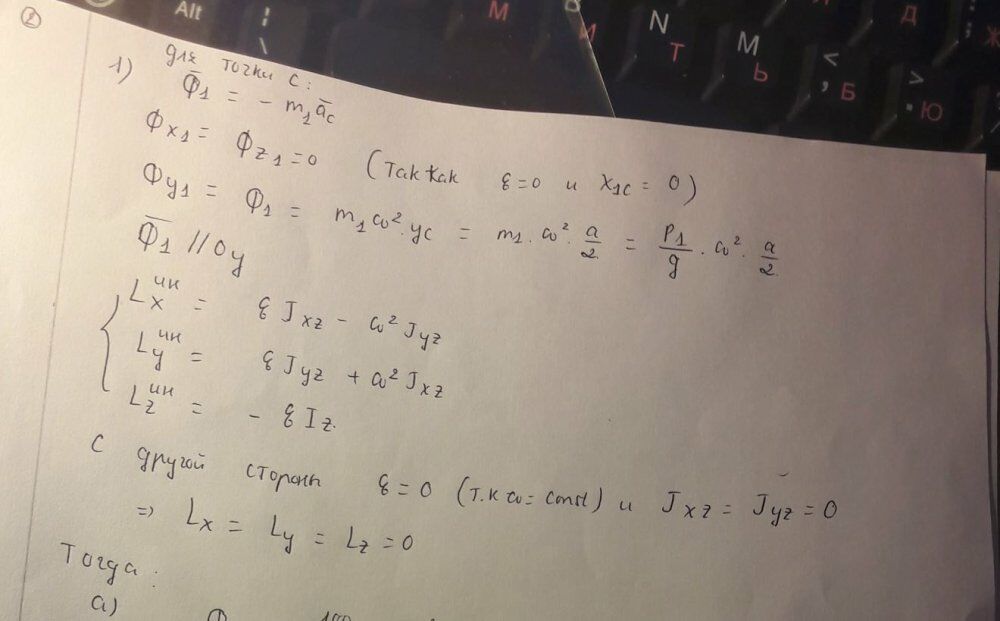 Alt
¦
\
М
И
N
Т
M
Ь
<
,
Б
>
.
Ю
Д
Ж
2
1) Для точки С:
Φ̅₁ = - m₁a̅c
Φx₁ = Φz₁ = 0 (так как ε=0 и x₁c = 0)
Φy₁ = Φ₁ = m₁ω²·yc = m₁·ω²·a/2 = P₁/g·ω²·a/2
Φ̅₁ // Oy
Lxᶦⁿ = εJxz - ω²Jyz
Lyᶦⁿ = εJyz + ω²Jxz
Lzᶦⁿ = - εIz
С другой стороны ε=0 (т.к ω=const) и Jxz = Jyz = 0
=> Lx = Ly = Lz = 0
Тогда:
а)